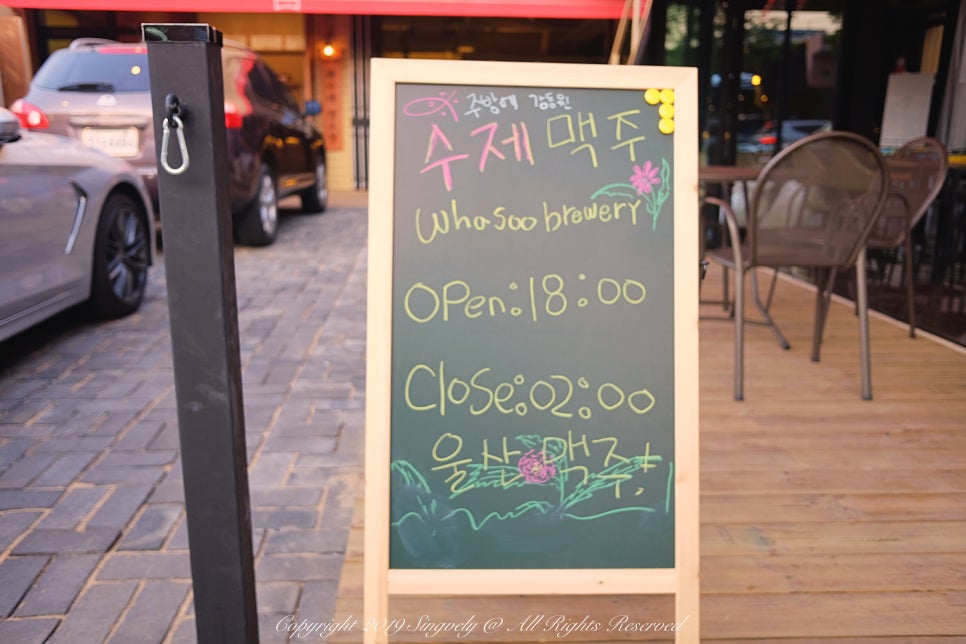 주방에 감동원
수제 맥주
Whasoo brewery
OPen:18:00
Close:02:00
울산맥주!
Copyright 2019 Singvely @ All Rights Reserved